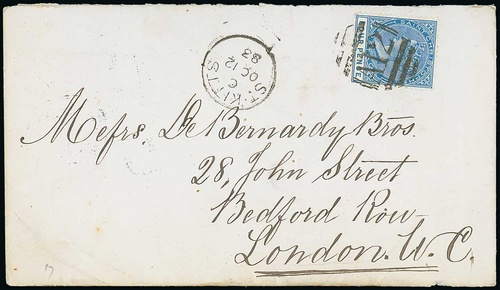 SAINT CHRISTOPHER
FOUR PENCE
A12
ST. KITTS
C
OC 12
83
Messrs. De Bernardy Bros.
28, John Street
Bedford Row
London. W. C.
17